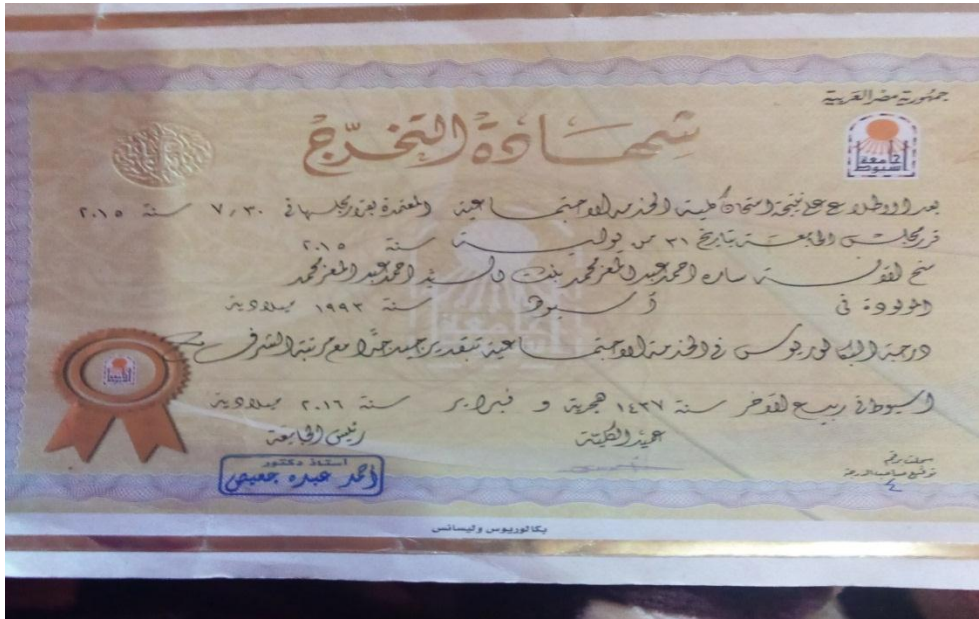 جمهورية مصر العربية
جامعة
أسيوط
شهادة التخرج
بعد الاطلاع على نتيجة امتحان كلية الخدمة الاجتماعية المعتمدة بقرار مجلسها في ٧/٣٠ سنة ٢٠١٥
قرر مجلس الجامعة بتاريخ ٣١ من يوليه سنة ٢٠١٥
منح الآنسة ساره احمد عبد المعز محمد بنت السيد احمد عبد المعز محمد
المولودة في أسيوط سنة ١٩٩٣ ميلادية
درجة البكالوريوس في الخدمة الاجتماعية بتقدير جيد جدا مع مرتبة الشرف
اسيوط في ربيع الآخر سنة ١٤٣٧ هجرية و فبراير سنة ٢٠١٦ ميلادية
عميد الكلية
رئيس الجامعة
استاذ دكتور
أحمد عبده جعيص
سجلت برقم
توقيع صاحب الدرجة
بكالوريوس وليسانس